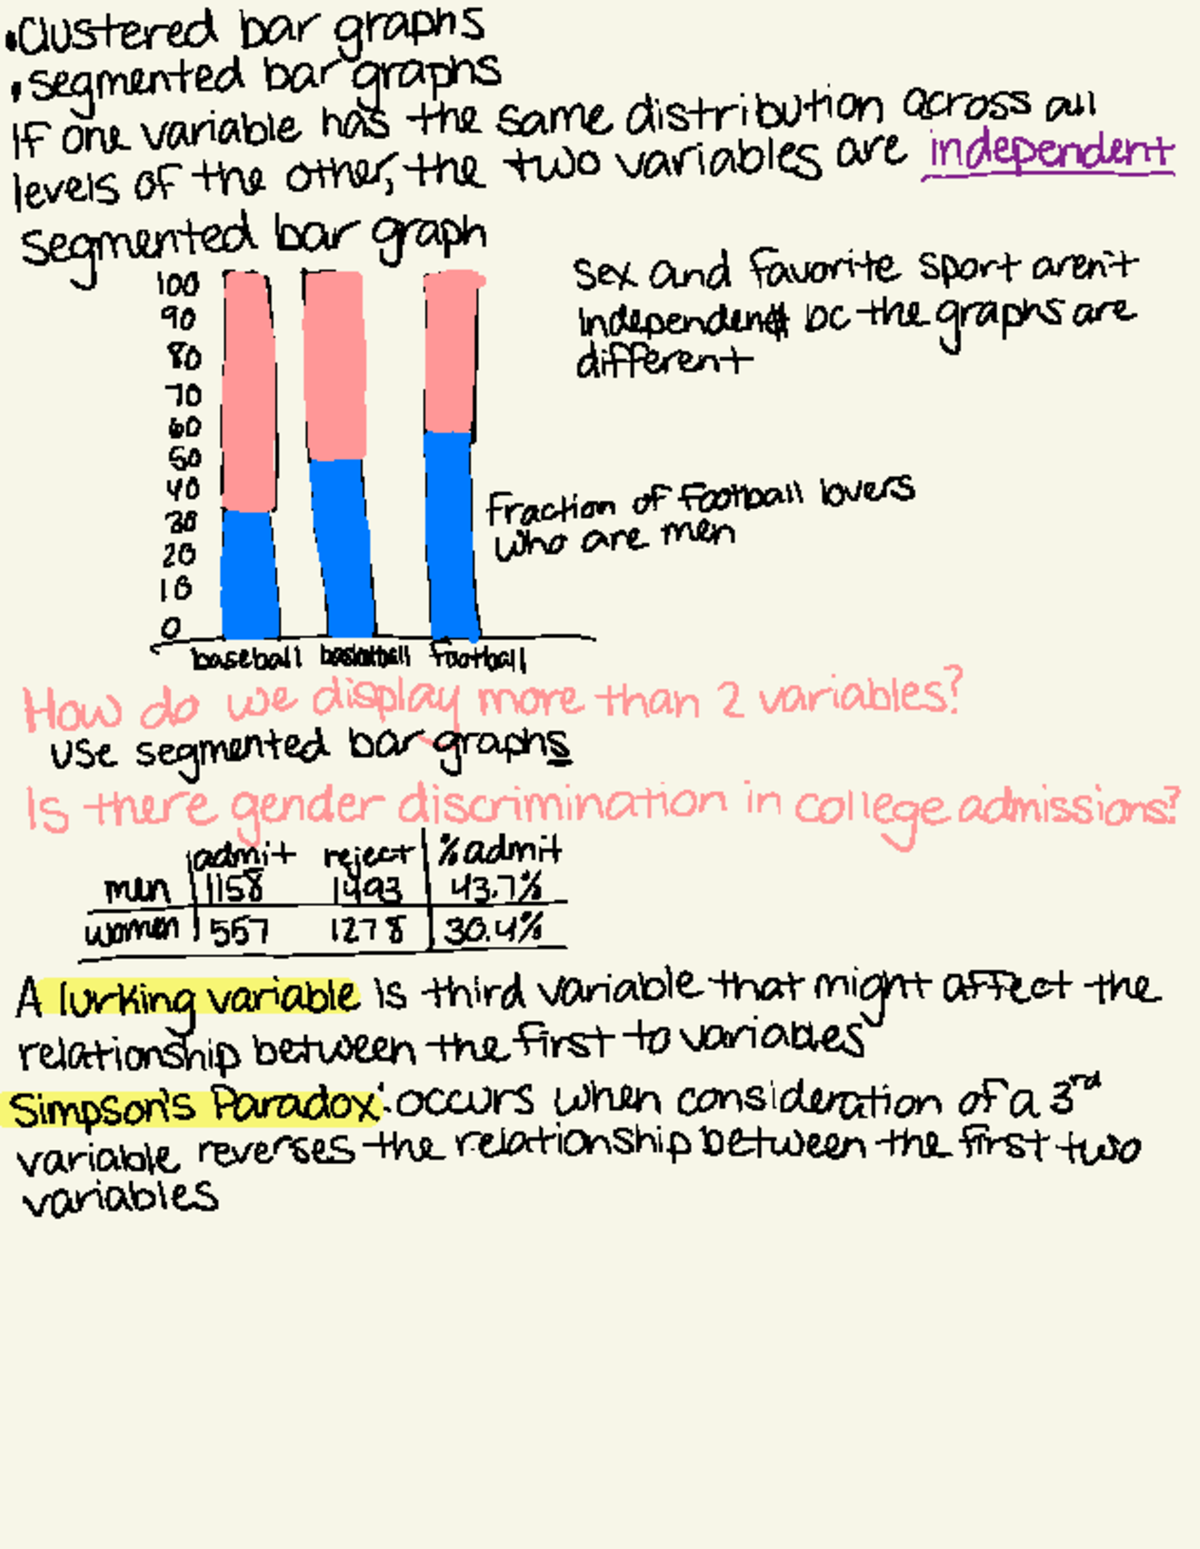 •Clustered bar graphs
•segmented bar graphs
If one variable has the same distribution across all
levels of the other, the two variables are independent
segmented bar graph
sex and favorite sport aren't
independent bc the graphs are
different
100
90
80
70
60
50
40
30
20
10
0
Fraction of football lovers
who are men
baseball basketball football
How do we display more than 2 variables?
use segmented bar graphs
Is there gender discrimination in college admissions?
admit reject %admit
men 1158 1493 43.7%
women 557 1278 30.4%
A lurking variable is third variable that might affect the
relationship between the first to variables
Simpson's Paradox: occurs when consideration of a 3rd
variable reverses the relationship between the first two
variables